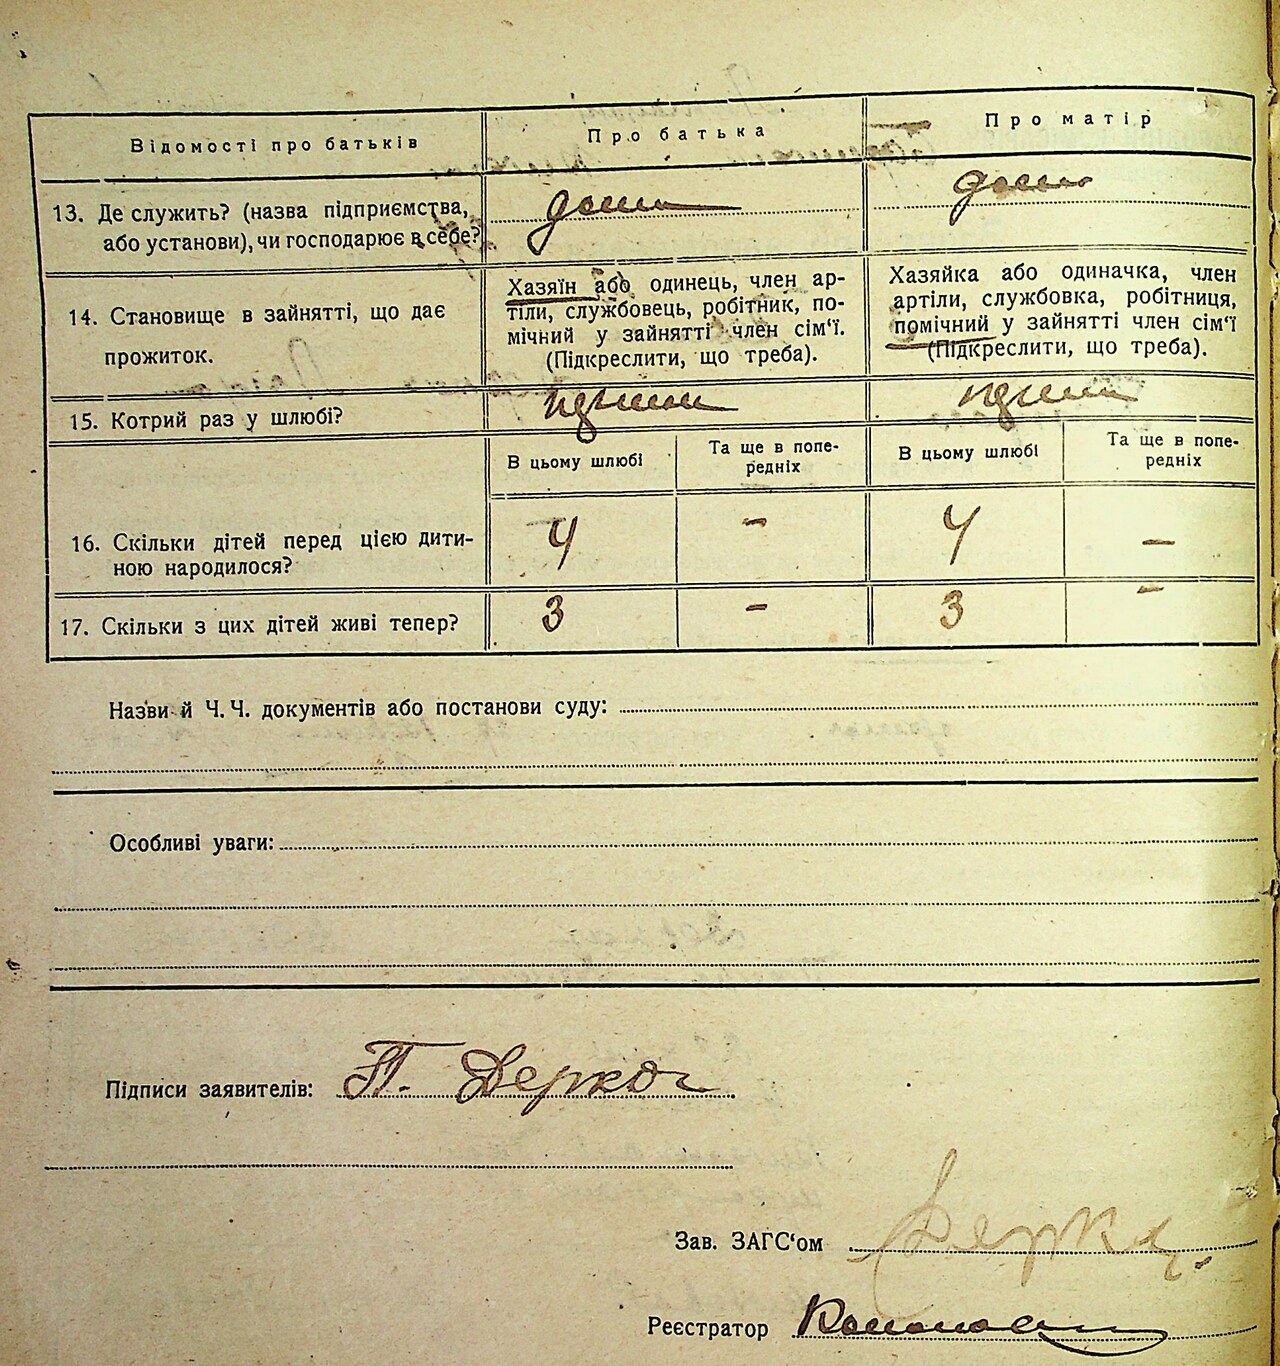 Відомості про батьків
Про батька
Про матір
13. Де служить? (назва підприємства,
або установи), чи господарює в себе?
дома
дома
14. Становище в зайнятті, що дає
прожиток.
Хазяїн або одинець, член ар-
тілі, службовець, робітник, по-
мічний у зайнятті член сім‘ї.
(Підкреслити, що треба).
Хазяйка або одиначка, член
артіли, службовка, робітниця,
помічний у зайнятті член сім‘ї
(Підкреслити, що треба).
15. Котрий раз у шлюбі?
В цьому шлюбі
Та ще в попе-
редніх
В цьому шлюбі
Та ще в попе-
редніх
16. Скільки дітей перед цією дити-
ною народилося?
4 - 4 -
17. Скільки з цих дітей живі тепер?
3 - 3 -
Назви й Ч. Ч. документів або постанови суду:
Особливі уваги:
Підписи заявителів: П. Деркач
Зав. ЗАГС‘ом
Реєстратор